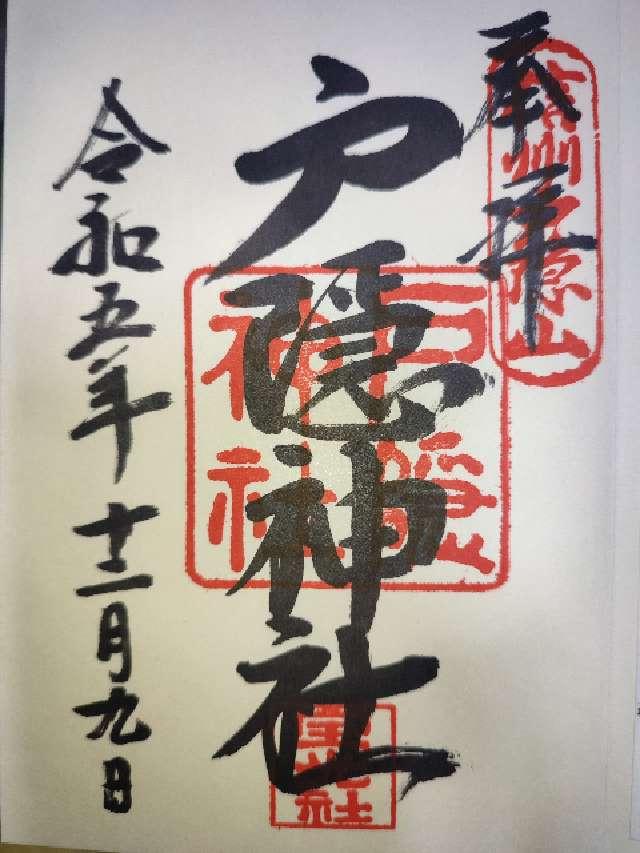 奉拝
信州戸隠山
戸隠神社
戸隠神社
宝光社
令和五年十二月九日